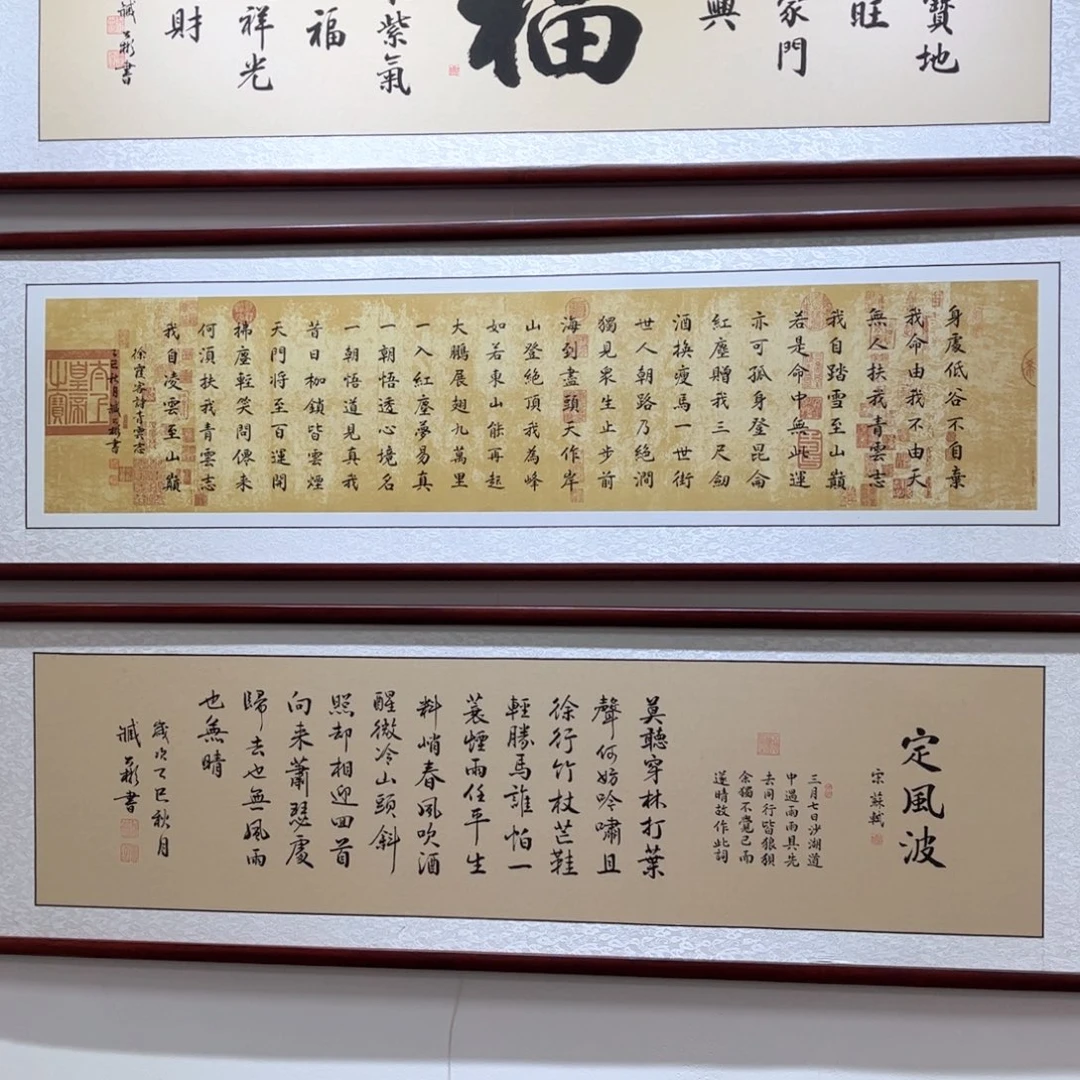 寶地
旺
家門
興
福
紫氣
福
祥光
財
彬書
身處低谷不自棄
我命由我不由天
無人扶我青雲志
我自踏雪至山巔
若是命中無此運
亦可孤身登昆侖
紅塵贈我三尺劍
酒換瘦馬一世街
世人朝路乃絕澗
獨見衆生止步前
海到盡頭天作岸
山登絕頂我為峰
如若東山能再起
大鵬展翅九萬里
一入紅塵夢易真
一朝悟透心境名
一朝悟道見真我
昔日枷鎖皆雲煙
天門将至百運開
拂塵輕笑問儒来
何須扶我青雲志
我自凌雲至山巔
徐霞客詩青雲志
乙巳秋月臧彬書
定風波
宋蘇軾
三月七日沙湖道
中遇雨雨具先
去同行皆狼狽
余獨不覺已而
遂晴故作此詞
莫聽穿林打葉
聲何妨吟嘯且
徐行竹杖芒鞋
輕勝馬誰怕一
蓑煙雨任平生
料峭春風吹酒
醒微冷山頭斜
照却相迎回首
向来蕭瑟處
歸去也無風雨
也無晴
歲次乙巳秋月
臧彬書